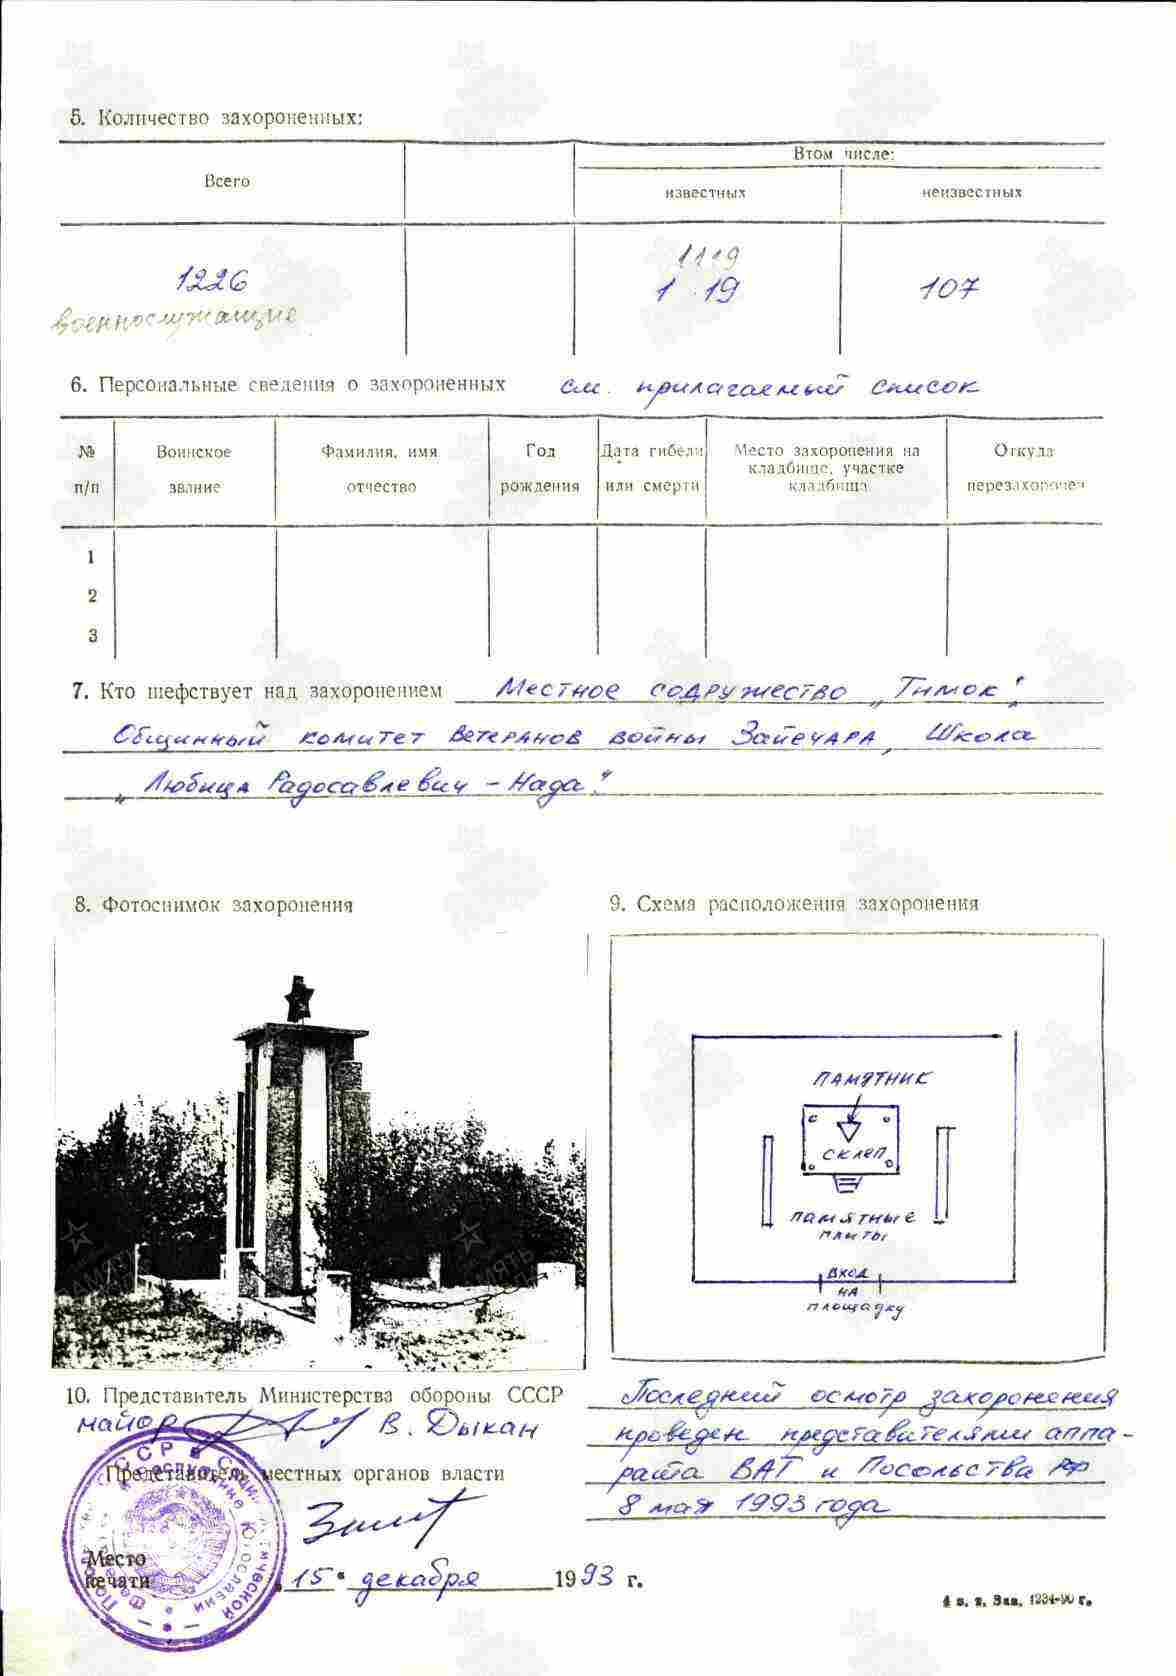 5. Количество захороненных:
Всего
Втом числе:
известных
неизвестных
1119
1226
1 19
107
военнослужащие
6. Персональные сведения о захороненных см. прилагаемый список
№ п/п
Воинское звание
Фамилия, имя отчество
Год рождения
Дата гибели или смерти
Место захоронения на кладбище, участке кладбища
Откуда перезахоронен
1
2
3
7. Кто шефствует над захоронением Местное содружество „Тимок",
Общинный комитет ветеранов войны Зайечара, Школа
„Любица Радосавлевич - Нада".
8. Фотоснимок захоронения
9. Схема расположения захоронения
ПАМЯТНИК
СКЛЕП
ПАМЯТНЫЕ
ПЛИТЫ
ВХОД
НА
ПЛОЩАДКУ
10. Представитель Министерства обороны СССР
майор В. Дыкан
Представитель местных органов власти
Место
печати
„15" декабря 1993 г.
Последний осмотр захоронения
проведен представителями аппа-
рата ВАТ и Посольства РФ
8 мая 1993 года
4 о. т. Зак. 1234-90 г.